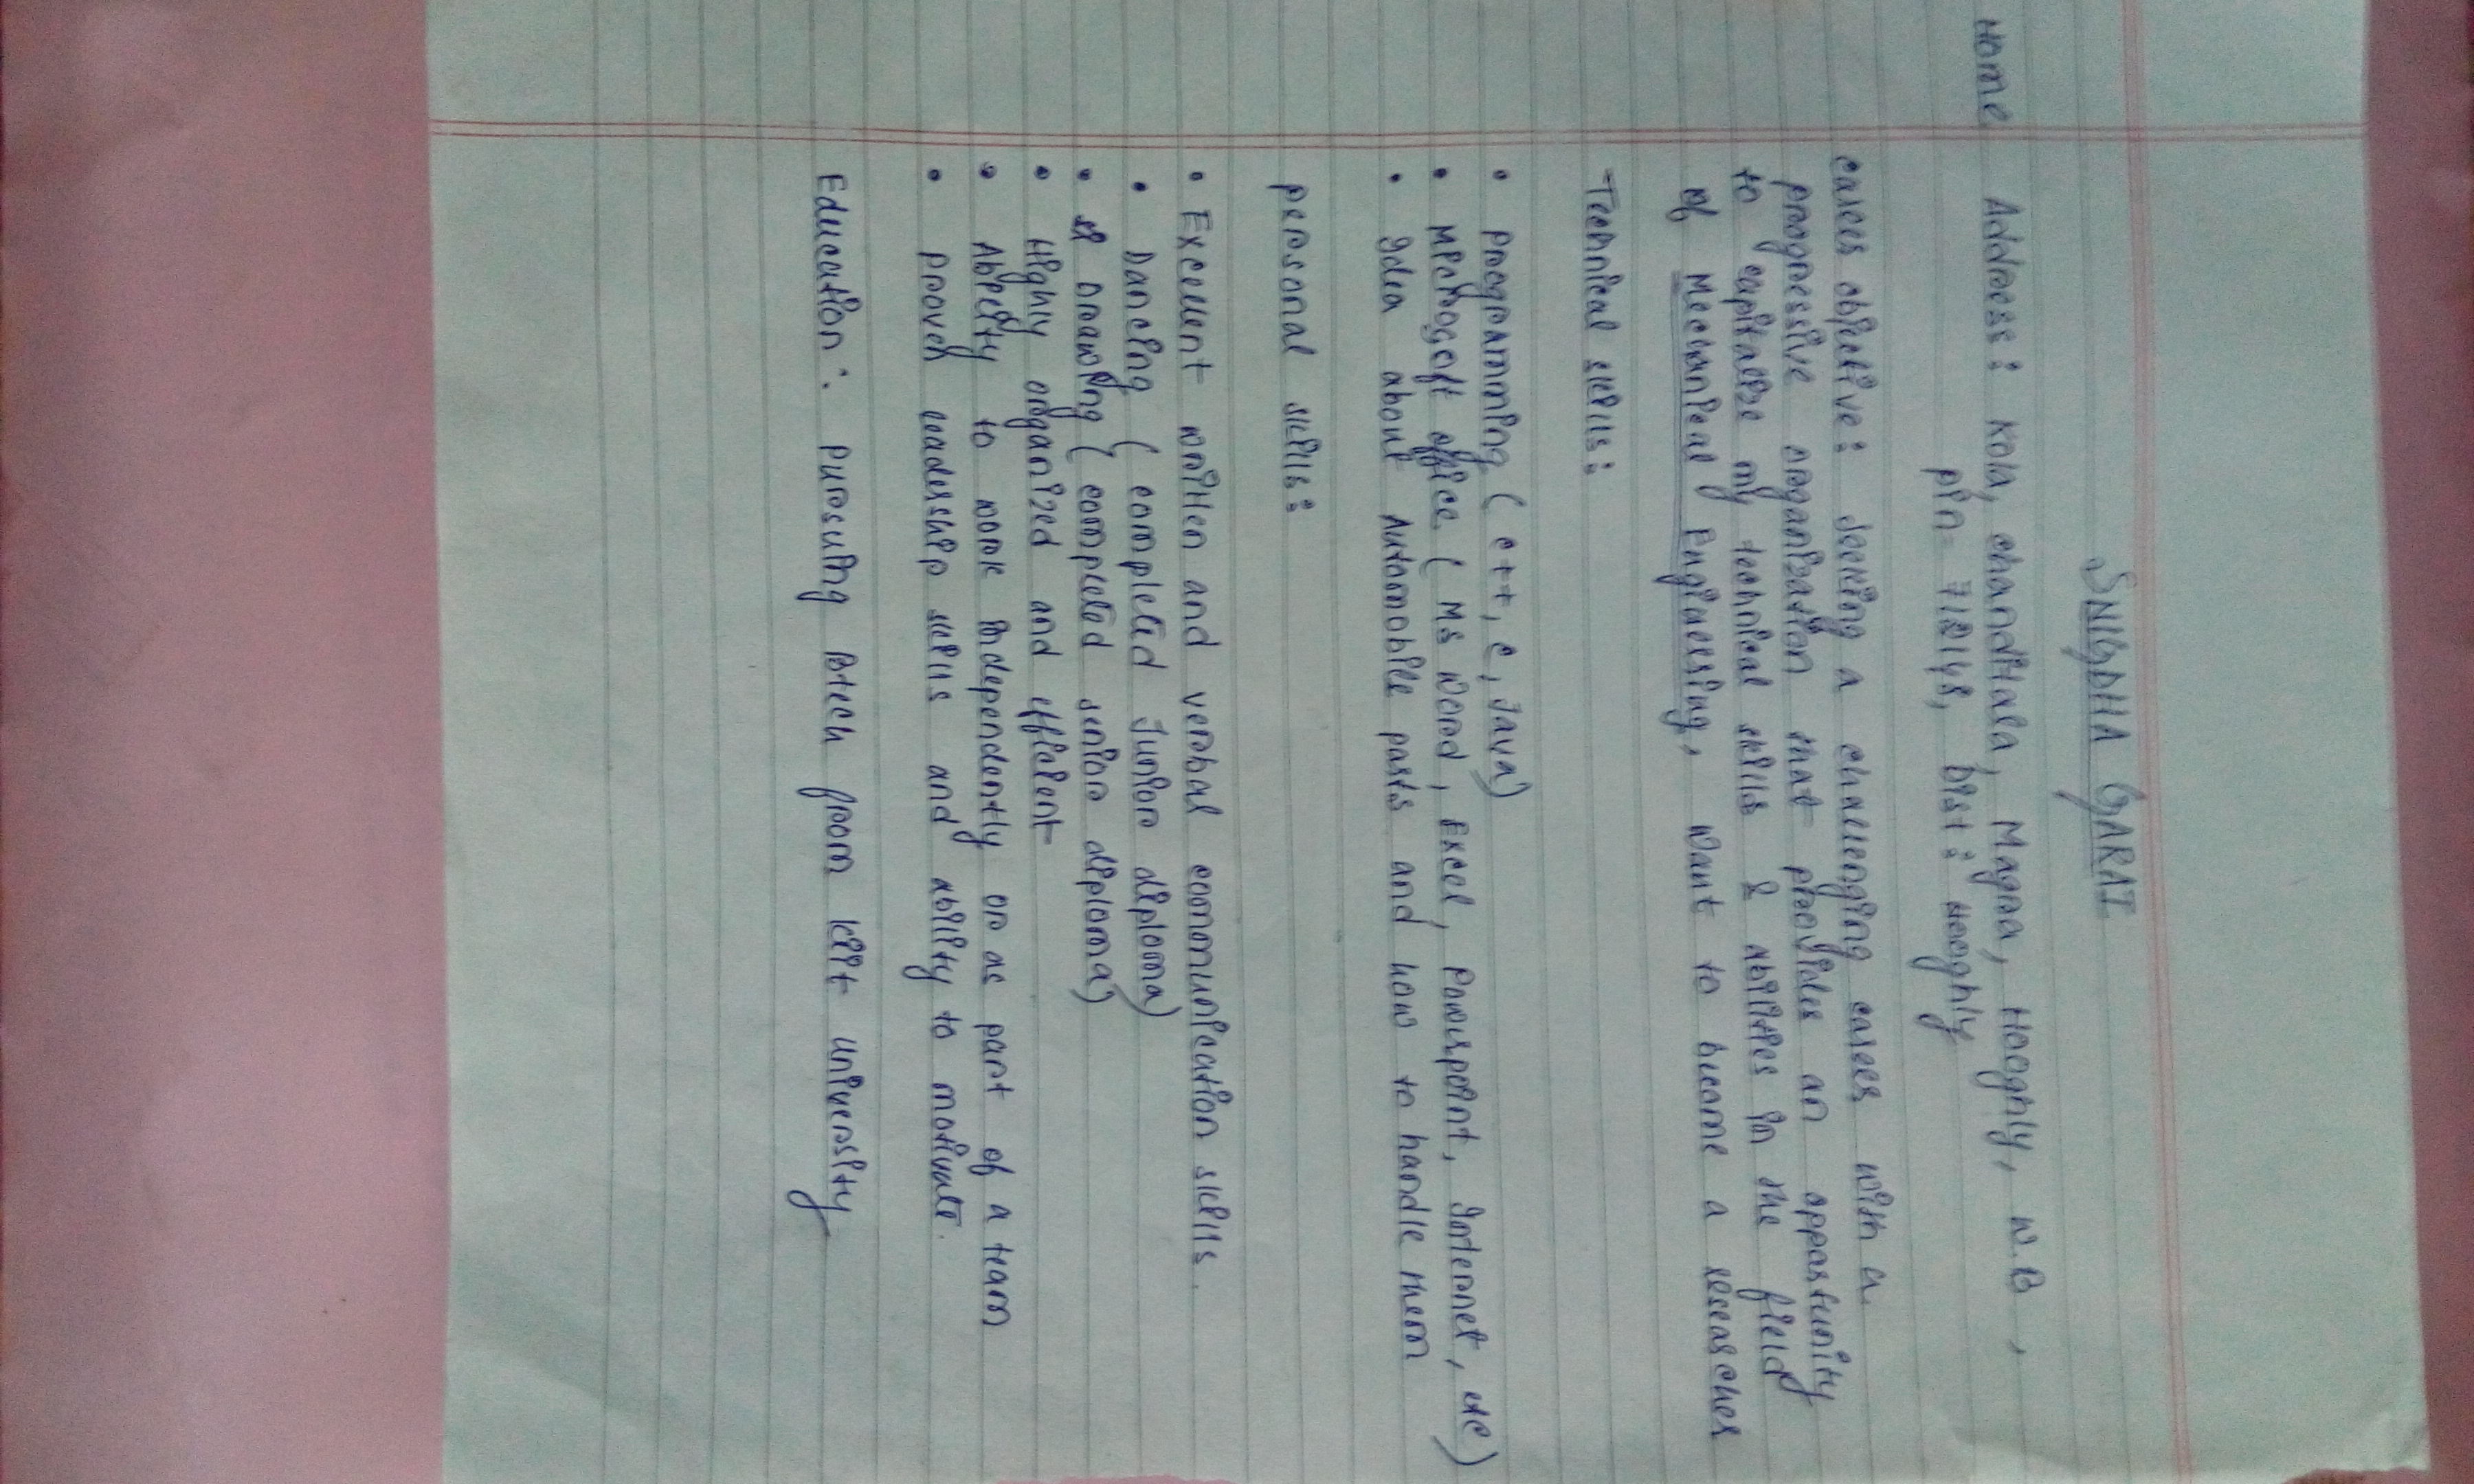 SNIGDHA GARAI
Home Address: Kola, chanditala, Magra, Hooghly, W.B,
pin- 712148, Dist: Hooghly
career objective: seeking a challenging career with a
progressive organization that provides an opportunity
to capitalize my technical skills & abilities in the field
of Mechanical Engineering, want to become a researcher
Technical skills:
• programming (c++, c, Java)
• Microsoft office (MS Word, Excel, Powerpoint, Internet, etc)
• Idea about Automobile parts and how to handle them
personal skills:
• Excellent written and verbal communication skills.
• Dancing (completed Junior diploma)
• Drawing (completed senior diploma)
• Highly organized and efficient
• Ability to work independently or as part of a team
• proven leadership skills and ability to motivate.
Education: Pursuing Btech from kiit university